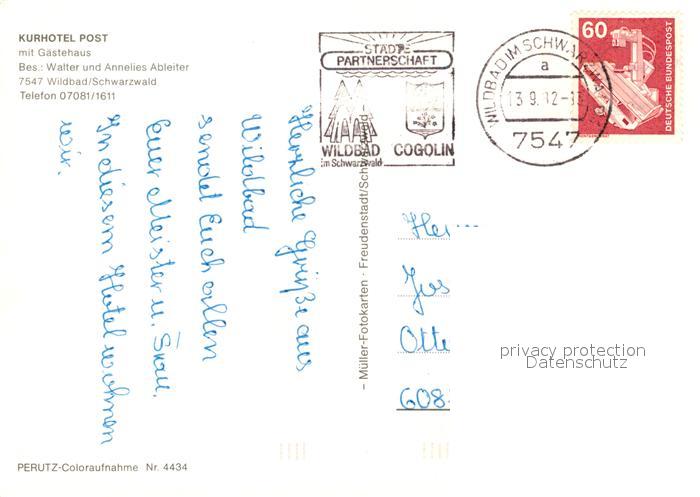 KURHOTEL POST
mit Gästehaus
Bes.: Walter und Annelies Ableiter
7547 Wildbad/Schwarzwald
Telefon 07081/1611
STÄDTE
PARTNERSCHAFT
WILDBAD
im Schwarzwald
COGOLIN
WILDBAD IM SCHWARZWALD
a
13.9.
7547
60
DEUTSCHE BUNDESPOST
Herzliche Grüße aus
Wildbad
sendet Euch allen
Euer Meister u. Frau.
In diesem Hotel wohnen
wir.
– Müller-Fotokarten · Freudenstadt/Schwarzwald –
Otte
608
privacy protection
Datenschutz
PERUTZ-Coloraufnahme Nr. 4434